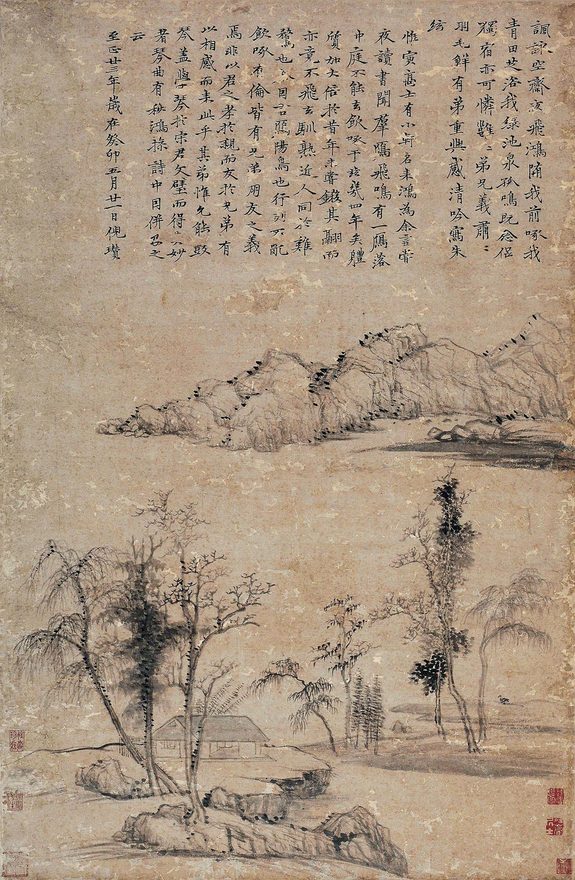 諷詠空齋裏飛鴻隋我前啄我
青田芝浴我綠池泉孤鳴既念侶
獨宿亦可憐難〻弟兄義肅〻
羽毛鮮有弟重興感清吟寫朱
絃
惟寅高士有小軒名来鴻為余言嘗
夜讀書聞羣鴈飛鳴有一鴈落
中庭不能去飲啄于茲幾四年矣體
質加大倍於昔年未嘗鎩其翮而
亦竟不飛去馴熟近人同於雞
鶩也陽鳥也行列不亂
飲啄有倫皆有兄弟朋友之義
焉非以君之孝於親而友於兄弟有
以相感而来此乎其弟惟允能鼓
琴蓋學琴於宋君久而得其妙
者琴曲有秋鴻操詩中因併及之
云
至正廿三年歲在癸卯五月廿一日倪瓚